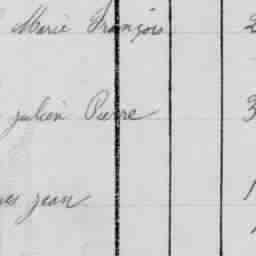 Marie François 2
julien Pierre 3
jean 1